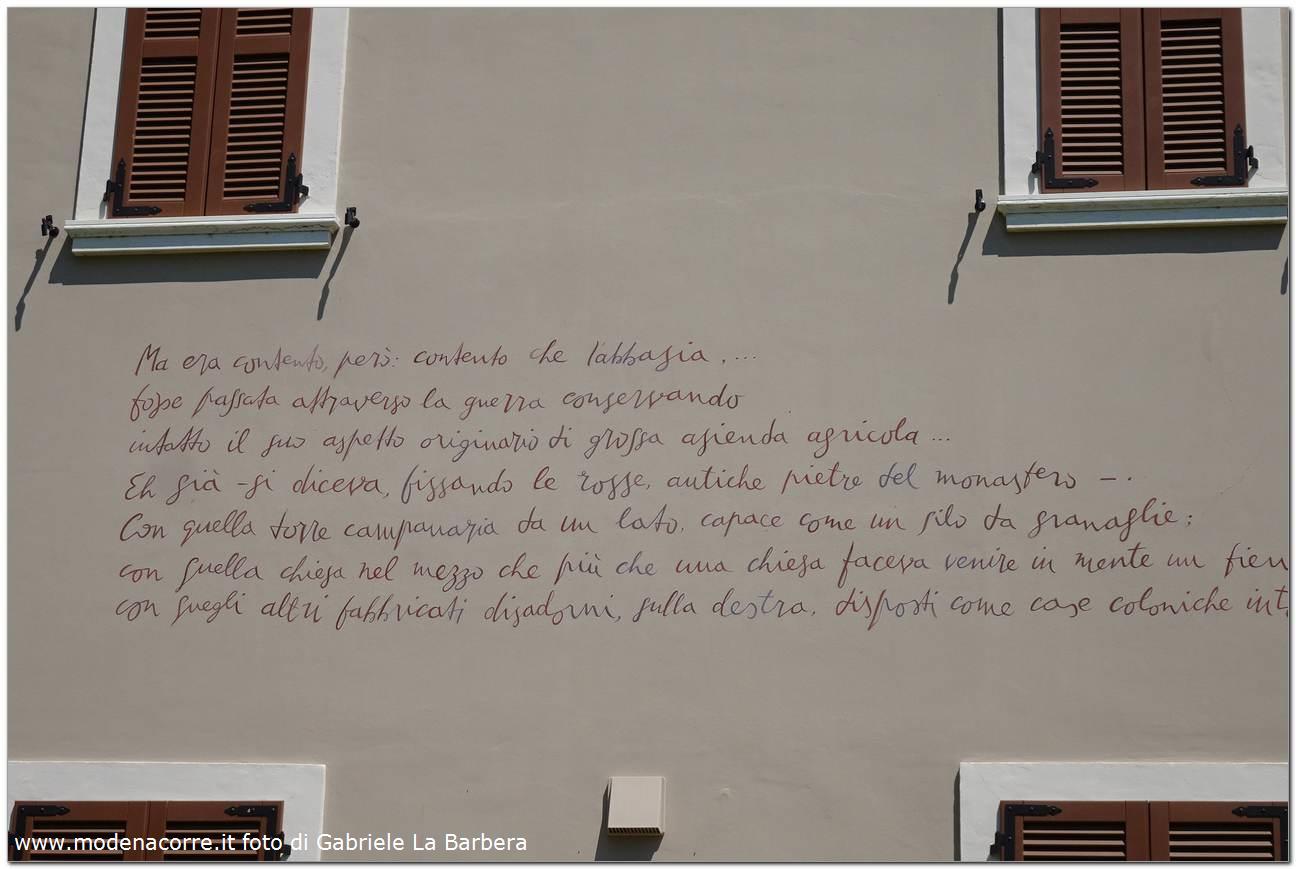 Ma era contento, però: contento che l'abbazia ....
fosse passata attraverso la guerra conservando
intatto il suo aspetto originario di grossa azienda agricola ...
Eh già - si diceva, fissando le rosse, antiche pietre del monastero - .
Con quella torre campanaria da un lato, capace come un silo da granaglie;
con quella chiesa nel mezzo che più che una chiesa faceva venire in mente un fien
con quegli altri fabbricati disadorni, sulla destra, disposti come case coloniche int
www.modenacorre.it foto di Gabriele La Barbera